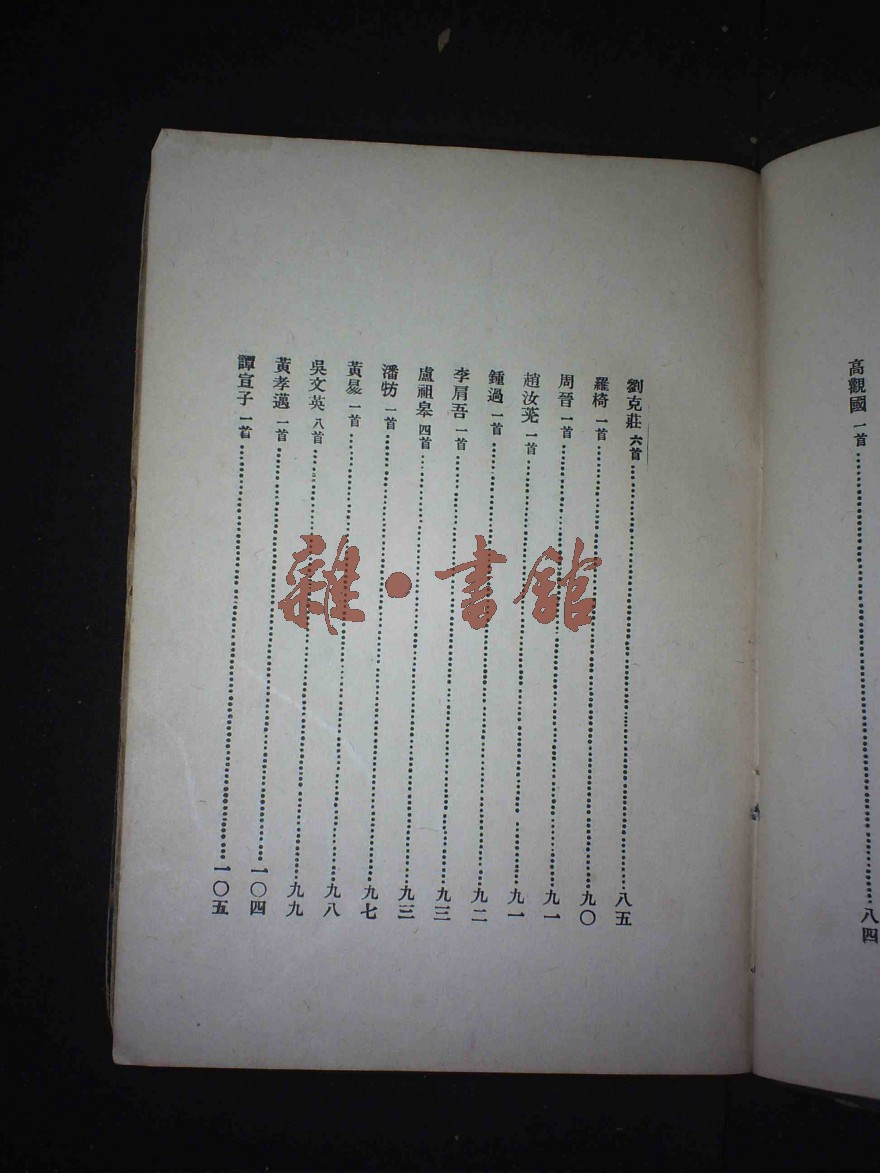 高觀國 一首 八四
劉克莊 六首 八五
羅椅 一首 九〇
周晉 一首 九一
趙汝茪 一首 九一
鍾過 一首 九二
李肩吾 一首 九三
盧祖皋 四首 九三
潘牥 一首 九七
黃昇 一首 九八
吳文英 八首 九九
黃孝邁 一首 一〇四
譚宣子 一首 一〇五
雜·書館